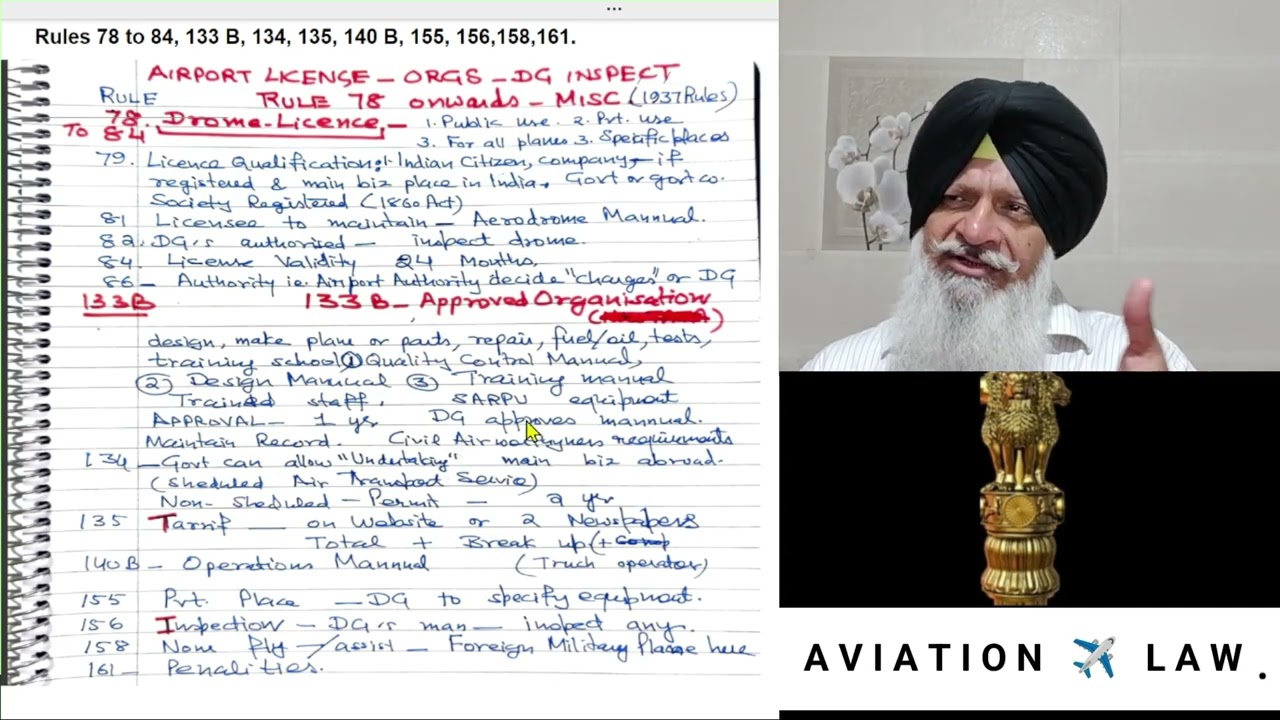 ...
Rules 78 to 84, 133 B, 134, 135, 140 B, 155, 156,158,161.
AIRPORT LICENSE - ORGS - DG INSPECT
RULE RULE 78 onwards - MISC (1937 Rules)
78 Drome-Licence, - 1. Public use. 2. Pvt. use
TO 84 3. For all planes 3. Specific places
79. Licence Qualification:- Indian Citizen, company - if
registered & main biz place in India, Govt or govt co.
Society Registered (1860 Act)
81 Licensee to maintain - Aerodrome Mannual.
82. DG's authorised - inspect drome.
84. License Validity 24 Months,
86 - Authority ie. Airport Authority decide "charges" or DG
133B 133B - Approved Organisation
design, make plane or parts, repair, fuel/oil, tests,
training school ① Quality Control Manual,
② Design Manual ③ Training manual
Trained staff. SARPU equipment
APPROVAL - 1 yr DG approves mannual.
Maintain Record. Civil Airworthyness requirements
134 - Govt can allow "Undertaking" main biz abroad.
(Sheduled Air Transport Servie)
Non-Sheduled - Permit - 2 yr
135 Tarrif - on Website or 2 Newspapers
Total + Break up
140B - Operations Mannual (Truch operator)
155 Pvt. Place - DG to specify equipment.
156 Inspection - DG's man - inspect any.
158 None Ply / assist - Foreign Military Plane here
161 - Penalities.
AVIATION ✈️ LAW.